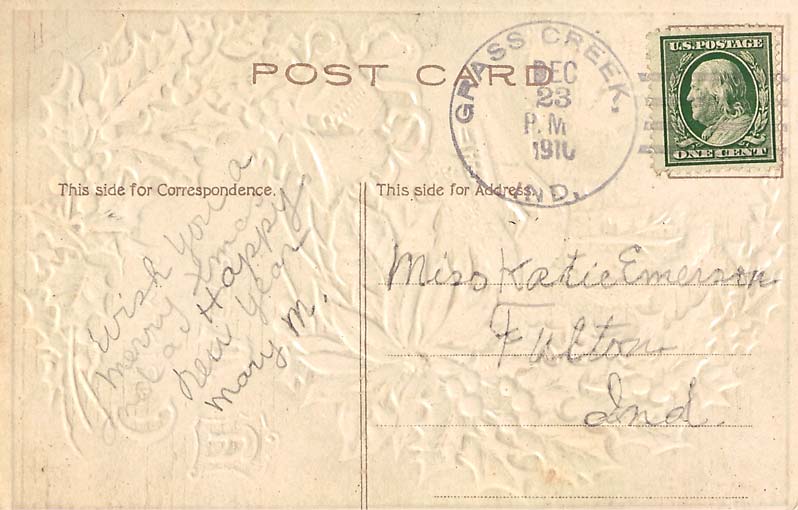 POST CARD
GRASS CREEK,
DEC
23
P.M
1910
IND.
U.S. POSTAGE
ONE CENT
This side for Correspondence.
This side for Address.
Wish you a
merry Xmas
and a Happy
new Year
Mary M.
Miss Katie Emerson
Fulton
Ind.